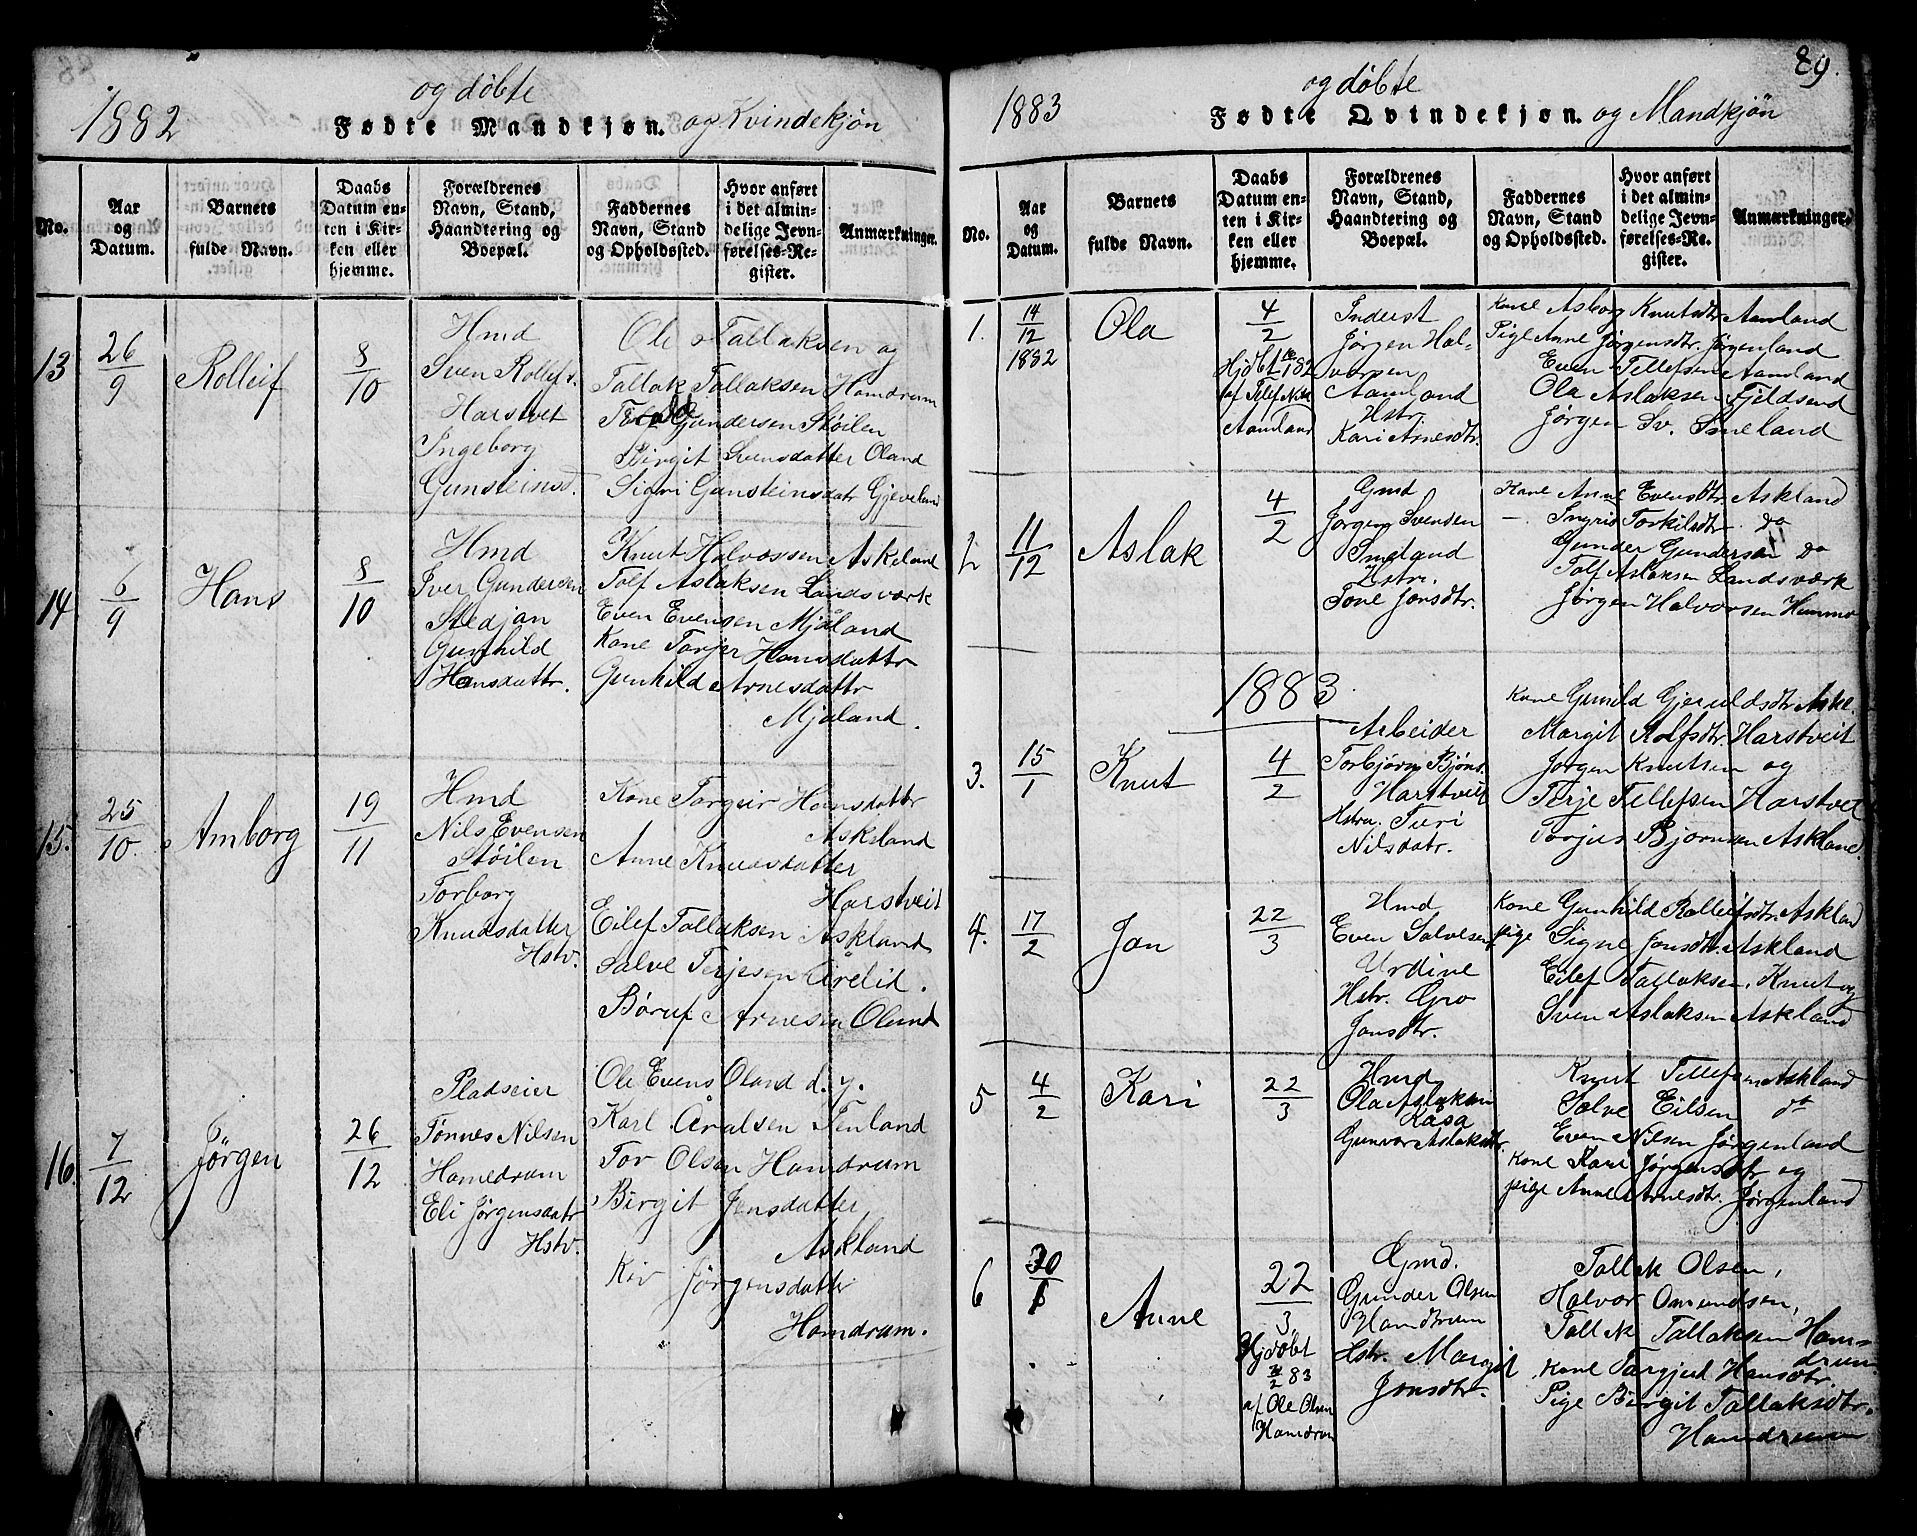 1882
og døbte
Fødte Mandkjøn. og Kvindekjøn
No.
Aar
og
Datum.
Barnets
fulde Navn.
Daabs
Datum en-
ten i Kir-
ken eller
hjemme.
Forældrenes
Navn, Stand,
Haandtering og
Boepæl.
Faddernes
Navn, Stand
og Opholdssted.
Hvor anført
i det almin-
delige Jevn-
førelses-Re-
gister.
Anmærkninger.
13
26
9
Rolleif
8
10
Hmd
Sven Rolleifs.
Harstvet
Ingeborg
Gunsteinsd.
Ole Tallaksen og
Tallak Tallaksen Hamdrum
Gundersen Støilen
Birgit Svensdatter Oland
Sigri Gunsteinsdatr Gjeveland
14
6
9
Hans
8
10
Hmd
Iver Gundersen
Stedjan
Gunhild
Hansdattr.
Knut Halvorsen Askeland
Tolf Aslaksen Landsværk
Even Evensen Mjåland
Kone Torjer Hansdattr
Gunhild Arnesdattr
Mjåland.
15.
25
10.
Amborg
19
11
Hmd
Nils Evensen
Støilen
Torborg
Knudsdatter
Hstv.
Kone Torgier Hansdattr
Askeland
Anne Knudsdatter
Harstveit
Eilef Tallaksen Askland
Salve Terjesen Urelid.
Børuf Arnesen Oland
16.
7
12
Jørgen
26
12
Pladseier
Tønnes Nilsen
Hamedram
Eli Jørgensdatr
Hstv.
Ole Evens Oland d. y.
Karl Aralsen Tenland
Tor Olsen Hamdrum
Birgit Jensdatter
Askland
Kiv Jørgensdatter
Hamdrum.
89.
1883
og døbte
Fødte Qvindekjøn. og Mandkjøn
No.
Aar
og
Datum.
Barnets
fulde Navn.
Daabs
Datum en-
ten i Kir-
ken eller
hjemme.
Forældrenes
Navn, Stand,
Haandtering og
Boepæl.
Faddernes
Navn, Stand
og Opholdssted.
Hvor anført
i det almin-
delige Jevn-
førelses-Re-
gister.
Anmærkninger.
1.
14
12
1882
Ola
4
2
af Tellef Nils
Aamland
Inderst
Jørgen Hal-
vorsen
Aamland
Hstr.
Kari Arnesdtr.
Kone Asborg Knutsdtr Aamland
Pige Anne Jørgensdtr. Jørgenland
Even Tellefsen Aamland
Ola Aslaksen Fjeldsend
Jørgen Sv. Smeland
2
11
12
Aslak
4
2
Gmd
Jørgen Svensen
Smeland
Hstr.
Tone Jonsdtr.
Kone Anne Evensdtr. Askland
— Ingrid Torkilsdtr. do
Gunder Gundersen do
Tolf Aslaksen Landsværk
Jørgen Halvorsen
1883
3.
15
1
Knut
4
2
Arbeider
Torbjørn Bjøns.
Harstveit
Hstru. Turi
Nilsdatr.
Kone Gunild Gjeruldsdtr Aske.
Margit Rolfsdtr. Harstveit
Jørgen Knutsen og
Terje Tellefsen Harstvet
Torjus Bjørnsen Askland.
4.
17
2
Jon
22
3
Hmd
Even Salvesen
Urdine
Hstr. Gro
Jonsdtr.
Kone Gunhild Rolleifsdtr. Askland
pige Signe Jonsdtr. Askland
Eilef Tallaksen, Knut og
Sven Aslaksen Askland
5
4
2
Kari
22
3
Hmd
Ola Aslaksen
Kasa
Gunvor Aslaksdtr.
Knut Tellefsen Askland
Salve Eilsen do
Even Nilsen Jørgenland
Kone Kari Jørgensdtr og
pige Anne Arnesdtr. Jørgenland
6
Anne
22
3
Hjdøbt
2 83
af Ole Olsen
Hamdrum
Gmd.
Gunder Olsen
Hamdrum
Hstr. Margit
Jonsdtr.
Tallak Olsen,
Halvor Omundsen,
Tallak Tallaksen Ham-
drum
Kone Targjerd Hansdtr.
Pige Birgit Tallaksdtr.
Hamdrum